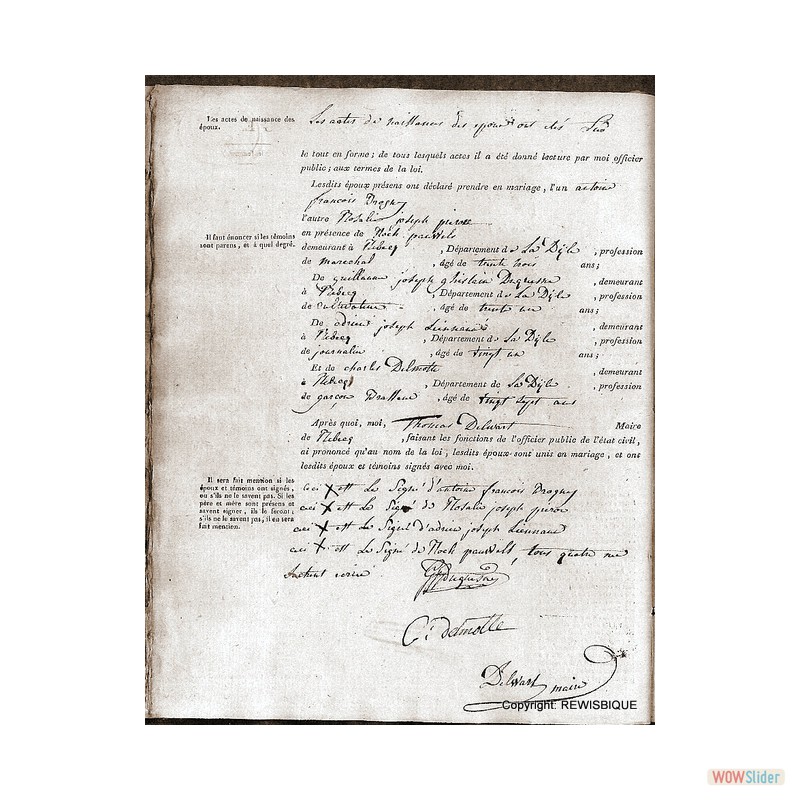 Les actes de naissance des
époux.
Les actes de naissance des epoux ont etés Lus
le tout en forme ; de tous lesquels actes il a été donné lecture par moi officier
public ; aux termes de la loi.
Lesdits époux présens ont déclaré prendre en mariage, l'un antoine
francois Drogny
l'autre Rosalie joseph
Il faut énoncer si les témoins
sont parens, et à quel degré.
en présence de Rock pauwels
demeurant à Rebecq , Département de La Dÿle , profession
de marechal , âgé de trente trois ans ;
De guillaume joseph ghislain Duquesne , demeurant
à Rebecq , Département de La Dÿle , profession
de cultivateur , âgé de trente un ans ;
De adrien joseph Liennard , demeurant
à Rebecq , Département de La Dÿle , profession
de journalier , âgé de vingt un ans ;
Et de charles Delmotte , demeurant
à Rebecq , Département de La Dÿle , profession
de garçon Brasseur , âgé de vingt sept ans
Après quoi, moi, Thomas Delwart Maire
de Rebecq , faisant les fonctions de l'officier public de l'état civil,
ai prononcé qu'au nom de la loi, lesdits époux sont unis en mariage, et ont
lesdits époux et témoins signés avec moi.
Il sera fait mention si les
époux et témoins ont signés,
ou s'ils ne le savent pas. Si les
père et mère sont présens et
savent signer, ils le feront ;
s'ils ne le savent pas, il en sera
fait mention.
ceci X est Le Signé d'antoine francois Drogny
ceci X est Le Signé de Rosalie joseph
ceci X est Le Signé d'adrien joseph Liennard
ceci X est Le Signé de Rock pauwels, tous quatre ne
sachant ecrire
Duquesne
C: delmotte
Delwart maire
Copyright: REWISBIQUE
WOWSlider